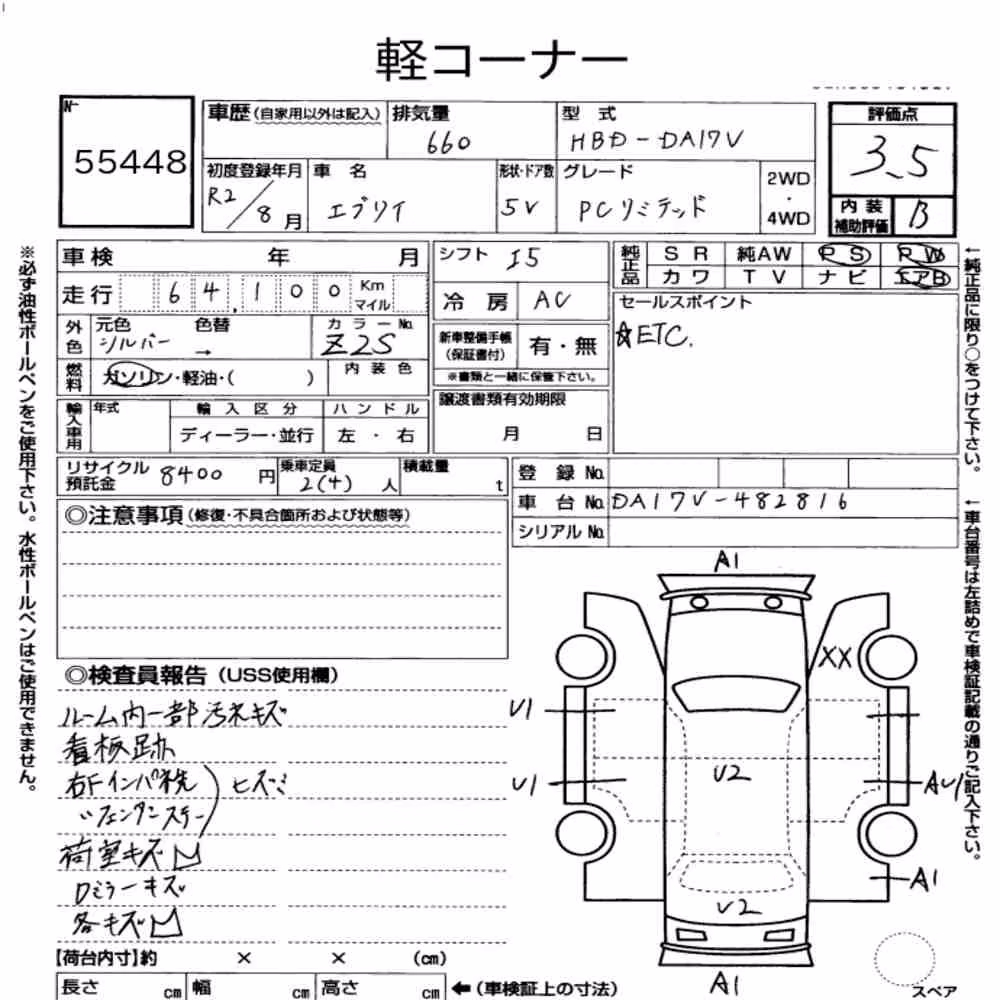 軽コーナー
No.
55448
車歴(自家用以外は記入)
排気量
660
型 式
HBD-DA17V
評価点
3.5
初度登録年月
R2/8月
車 名
エブリイ
形状・ドア数
5V
グレード
PCリミテッド
2WD
・
4WD
内装
補助評価
B
車検 年 月
シフト I5
純正品
SR 純AW PS PW
カワ TV ナビ エアB
走行 64,100 Km
マイル
冷 房 AC
セールスポイント
☆ETC.
外色
元色 色替
シルバー →
カラーNo.
Z2S
新車整備手帳
(保証書付)
有・無
※書類と一緒に保管下さい。
燃料
ガソリン・軽油・( )
内装色
輸入車用
年式
輸入区分
ハンドル
ディーラー・並行
左 ・ 右
譲渡書類有効期限
月 日
リサイクル
預託金
8400円
乗車定員
2(4)人
積載量
t
登 録 No.
車 台 No. DA17V-482816
シリアル No.
◎注意事項(修復・不具合箇所および状態等)
◎検査員報告(USS使用欄)
ルーム内一部汚れキズ
看板跡
右Fインパネ先
〃フェンダーステー
ヒズミ
荷室キズ凹
Dミラーキズ
各キズ凹
【荷台内寸】約 × × (cm)
長さ cm 幅 cm 高さ cm
←(車検証上の寸法)
A1
XX
U1
U1
U2
AU1
A1
U2
A1
スペア
※必ず油性ボールペンをご使用下さい。水性ボールペンはご使用できません。
←純正品に限り○をつけて下さい。
←車台番号は左詰めで車検証記載の通りご記入下さい。